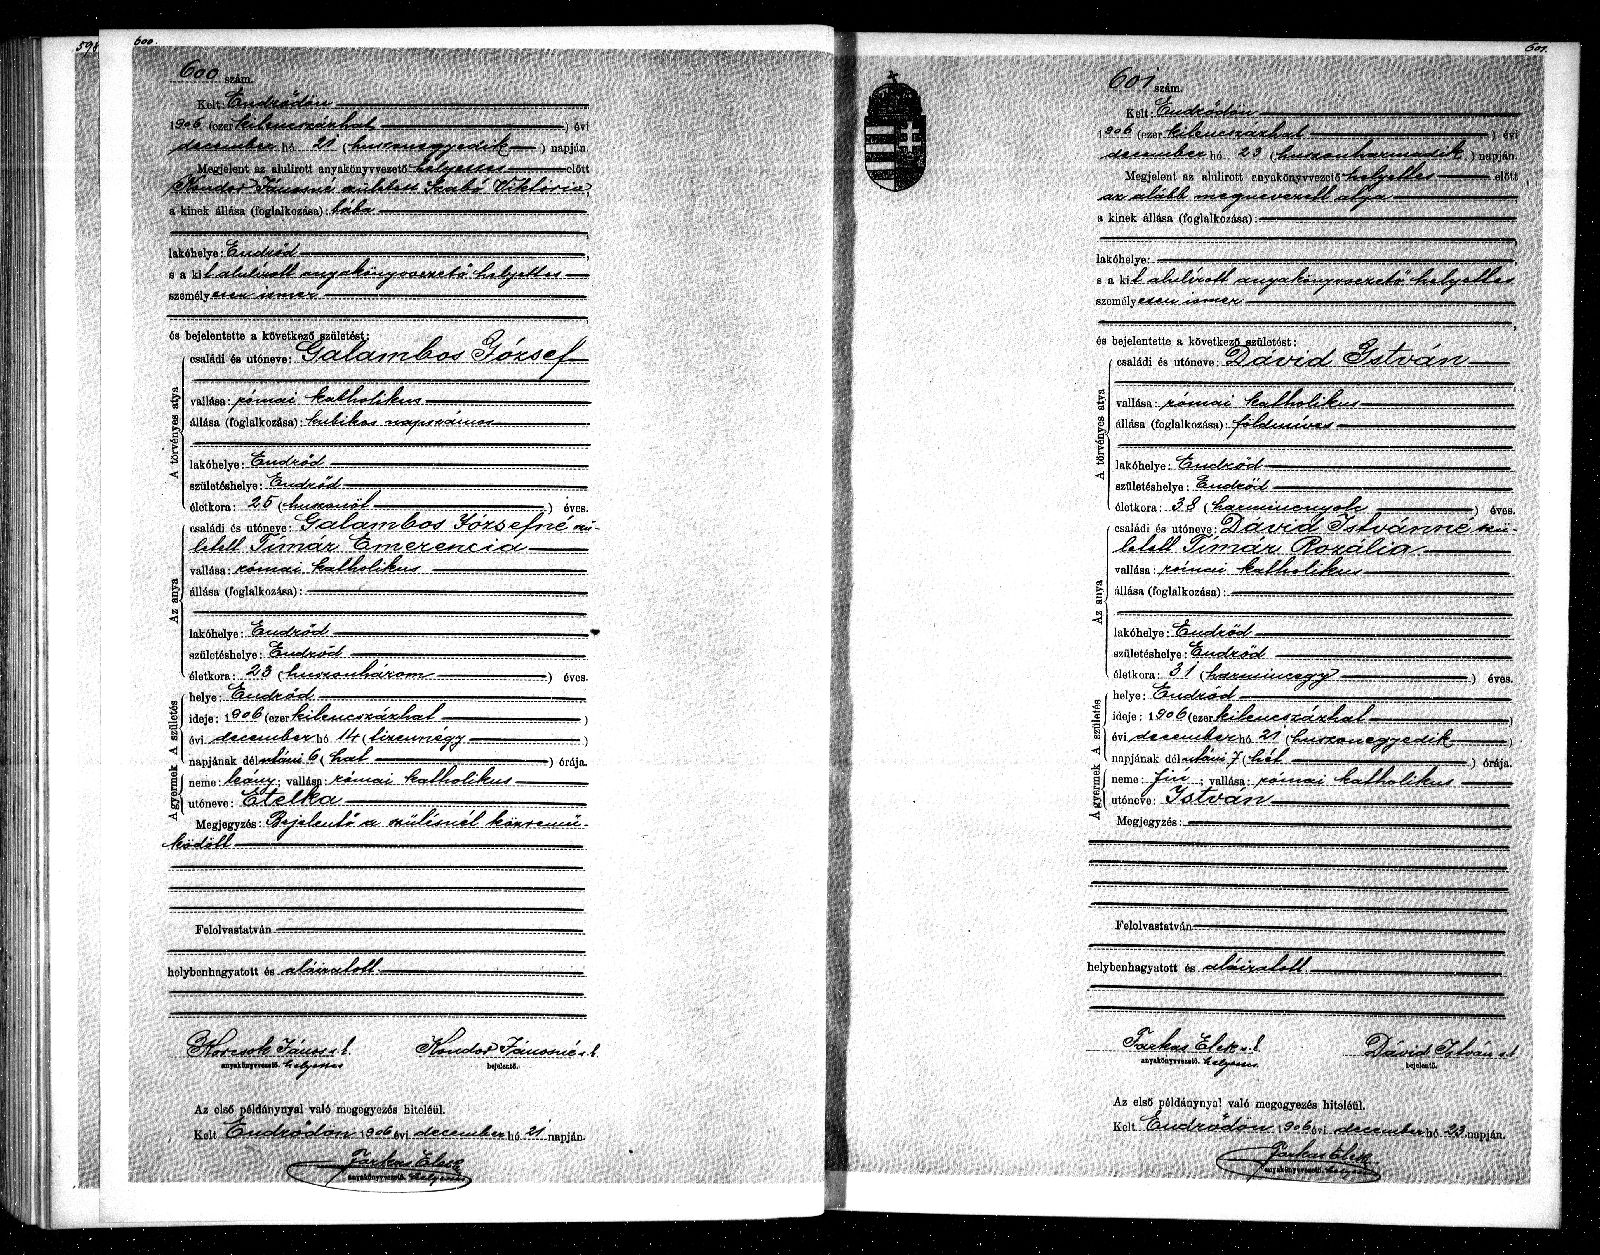 598
600.
600 szám.
Kelt: Endrődön
1906 (ezer kilencszázhat) évi
december hó 21 (huszonegyedik) napján.
Megjelent az alulirott anyakönyvvezető helyettes előtt
Kondor Jánosné született Szabó Viktória,
a kinek állása (foglalkozása): bába
lakóhelye: Endrőd
s a kit alulírott anyakönyvvezető helyettes
személyesen ismer
és bejelentette a következő születést:
A törvényes atya
családi és utóneve: Galambos József
vallása: római katholikus
állása (foglalkozása): kubikos napszámos
lakóhelye: Endrőd
születéshelye: Endrőd
életkora: 25 (huszonöt) éves.
Az anya
családi és utóneve: Galambos Józsefné szü-
letett Tímár Emerencia
vallása: római katholikus
állása (foglalkozása):
lakóhelye: Endrőd
születéshelye: Endrőd
életkora: 23 (huszonhárom) éves.
A gyermek A születés
helye: Endrőd
ideje: 1906 (ezer kilencszázhat)
évi december hó 14 (tizennégy)
napjának délutáni 6 (hat) órája.
neme: leány; vallása: római katholikus
utóneve: Etelka
Megjegyzés: Bejelentő a szülésnél közremű-
ködött
Felolvastatván
helybenhagyatott és aláiratott
Korcsok János s.k.
anyakönyvvezető. helyettes
Kondor Jánosné s.k.
bejelentő.
Az első példánynyal való megegyezés hiteléül.
Kelt Endrődön 1906 évi december hó 21 napján.
Farkas Elek
anyakönyvvezető. helyettes
601.
601 szám.
Kelt: Endrődön
1906 (ezer kilencszázhat) évi
december hó 23 (huszonharmadik) napján.
Megjelent az alulirott anyakönyvvezető helyettes előtt
az alább megnevezett atya
a kinek állása (foglalkozása):
lakóhelye:
s a kit alulírott anyakönyvvezető helyettes
személyesen ismer
és bejelentette a következő születést:
A törvényes atya
családi és utóneve: Dávid István
vallása: római katholikus
állása (foglalkozása): földmíves
lakóhelye: Endrőd
születéshelye: Endrőd
életkora: 38 (harmincnyolc) éves.
Az anya
családi és utóneve: Dávid Istvánné szü-
letett Tímár Rozália
vallása: római katholikus
állása (foglalkozása):
lakóhelye: Endrőd
születéshelye: Endrőd
életkora: 31 (harmincegy) éves.
A gyermek A születés
helye: Endrőd
ideje: 1906 (ezer kilencszázhat)
évi december hó 21 (huszonegyedik)
napjának délutáni 7 (hét) órája.
neme: fiú; vallása: római katholikus
utóneve: István
Megjegyzés:
Felolvastatván
helybenhagyatott és aláiratott
Farkas Elek s.k.
anyakönyvvezető. helyettes
Dávid István s.k.
bejelentő.
Az első példánynyal való megegyezés hiteléül.
Kelt. Endrődön 1906 évi december hó 23 napján.
Farkas Elek
anyakönyvvezető. helyettes